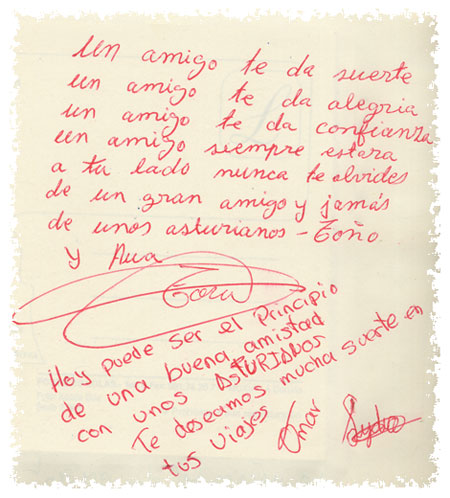 Un amigo te da suerte
un amigo te da alegria
un amigo te da confianza
un amigo siempre estara
a tu lado nunca te olvides
de un gran amigo y jamás
de unos asturianos - Toño.
y Ana
Hoy puede ser el Principio
de una buena amistad
con unos ASTURIANOS
Te deseamos mucha suerte en
tus viajes Omar